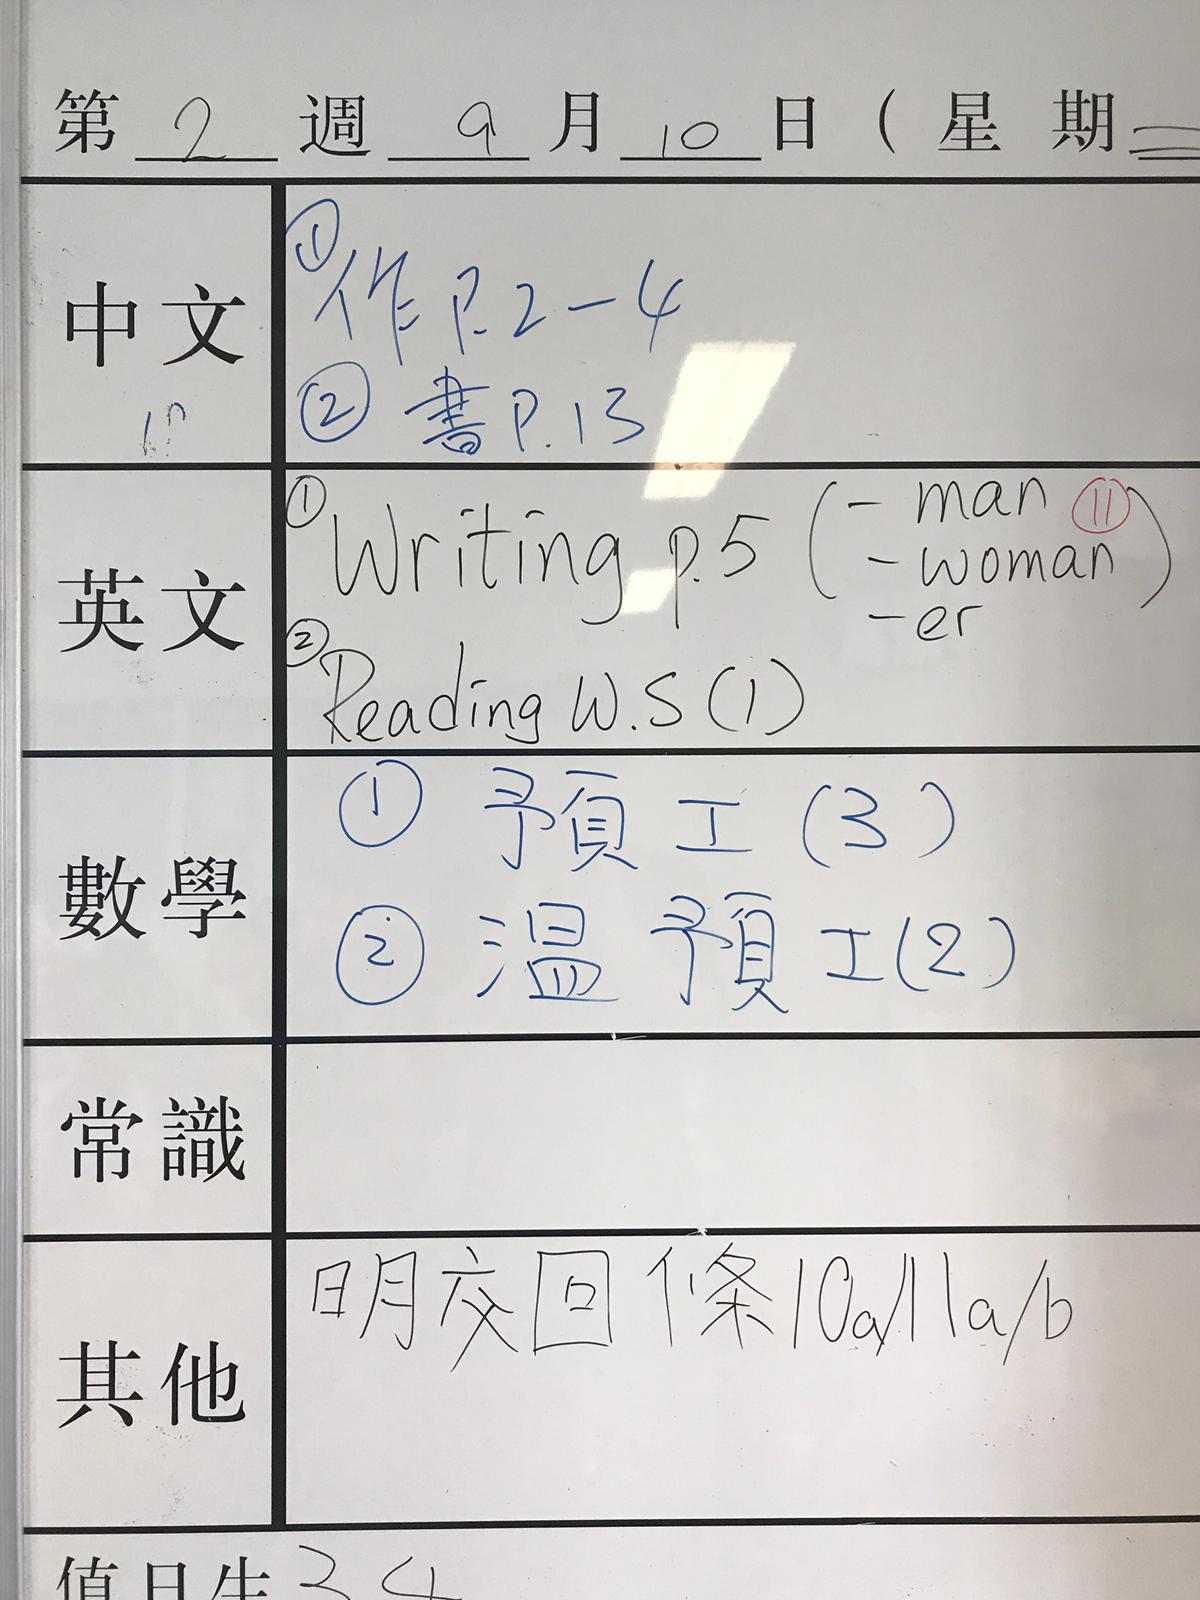 第 2 週 9 月 10 日 ( 星 期 二
中文
① 作 P.2-4
② 書 P.13
英文
① Writing p.5 ( - man ⑪
- woman )
- er
② Reading W.S (1)
數學
① 預 工 (3)
② 溫 預 工 (2)
常識
其他
明交回條 10a/11a/b
值日生 34